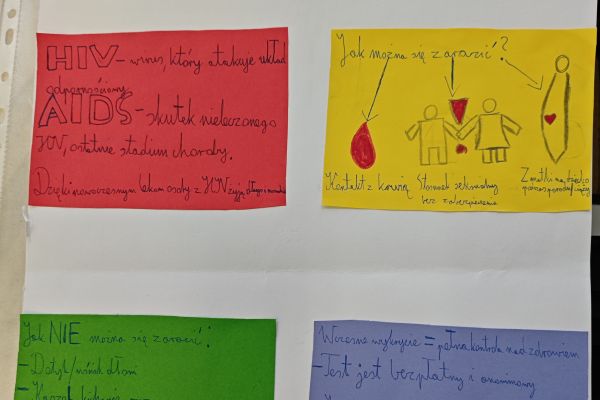 HIV - wirus, który atakuje układ
odpornościowy
AIDS - skutek nieleczonego
HIV, ostatnie stadium choroby.
Dzięki nowoczesnym lekom osoby z HIV żyją długo i
Jak można się zarazić?
Kontakt z krwią
Stosunek seksualny
bez zabezpieczenia
Z matki na dziecko
podczas porodu/ciąży
Jak NIE można się zarazić:
- Dotyk/uścisk dłoni
- Kaszel
Wczesne wykrycie = pełna kontrola nad zdrowiem
- Test jest bezpłatny i anonimowy